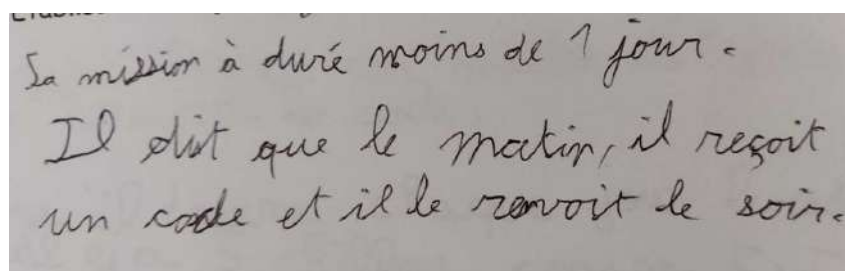 Sa mission à duré moins de 1 jour.
Il dit que le matin, il reçoit
un code et il le renvoit le soir.